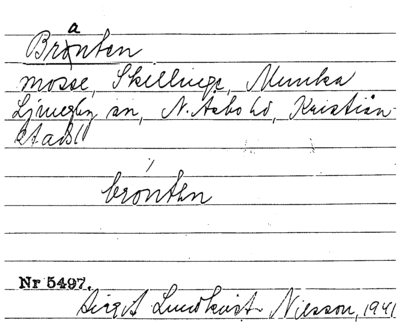 a
Bronten
mosse, Skillinge, Munka
Ljungby sn, N. Åsbo hd, Kristian
stads l
brónten
Nr 5497.
Birgit Lundkvist-Nilsson, 1941